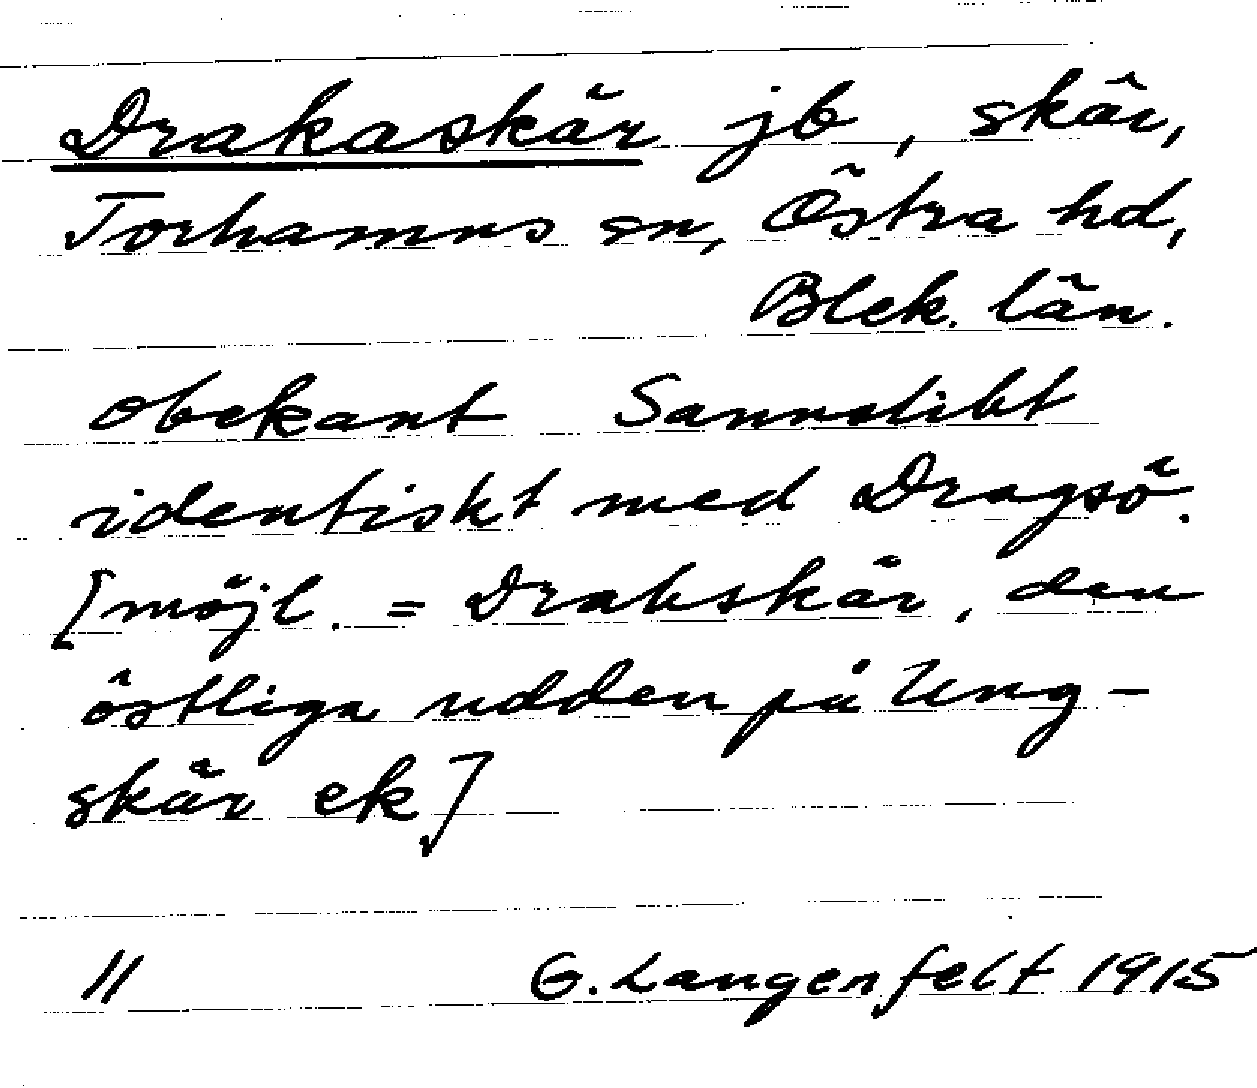 Drakaskär jb, skär,
Torhamns sn, Östra hd,
Blek. län.
obekant Sannolikt
identiskt med Dragsö.
[möjl. = Drakskär, den
östliga udden på Ung-
skär ek]
11 G. Langenfelt 1915